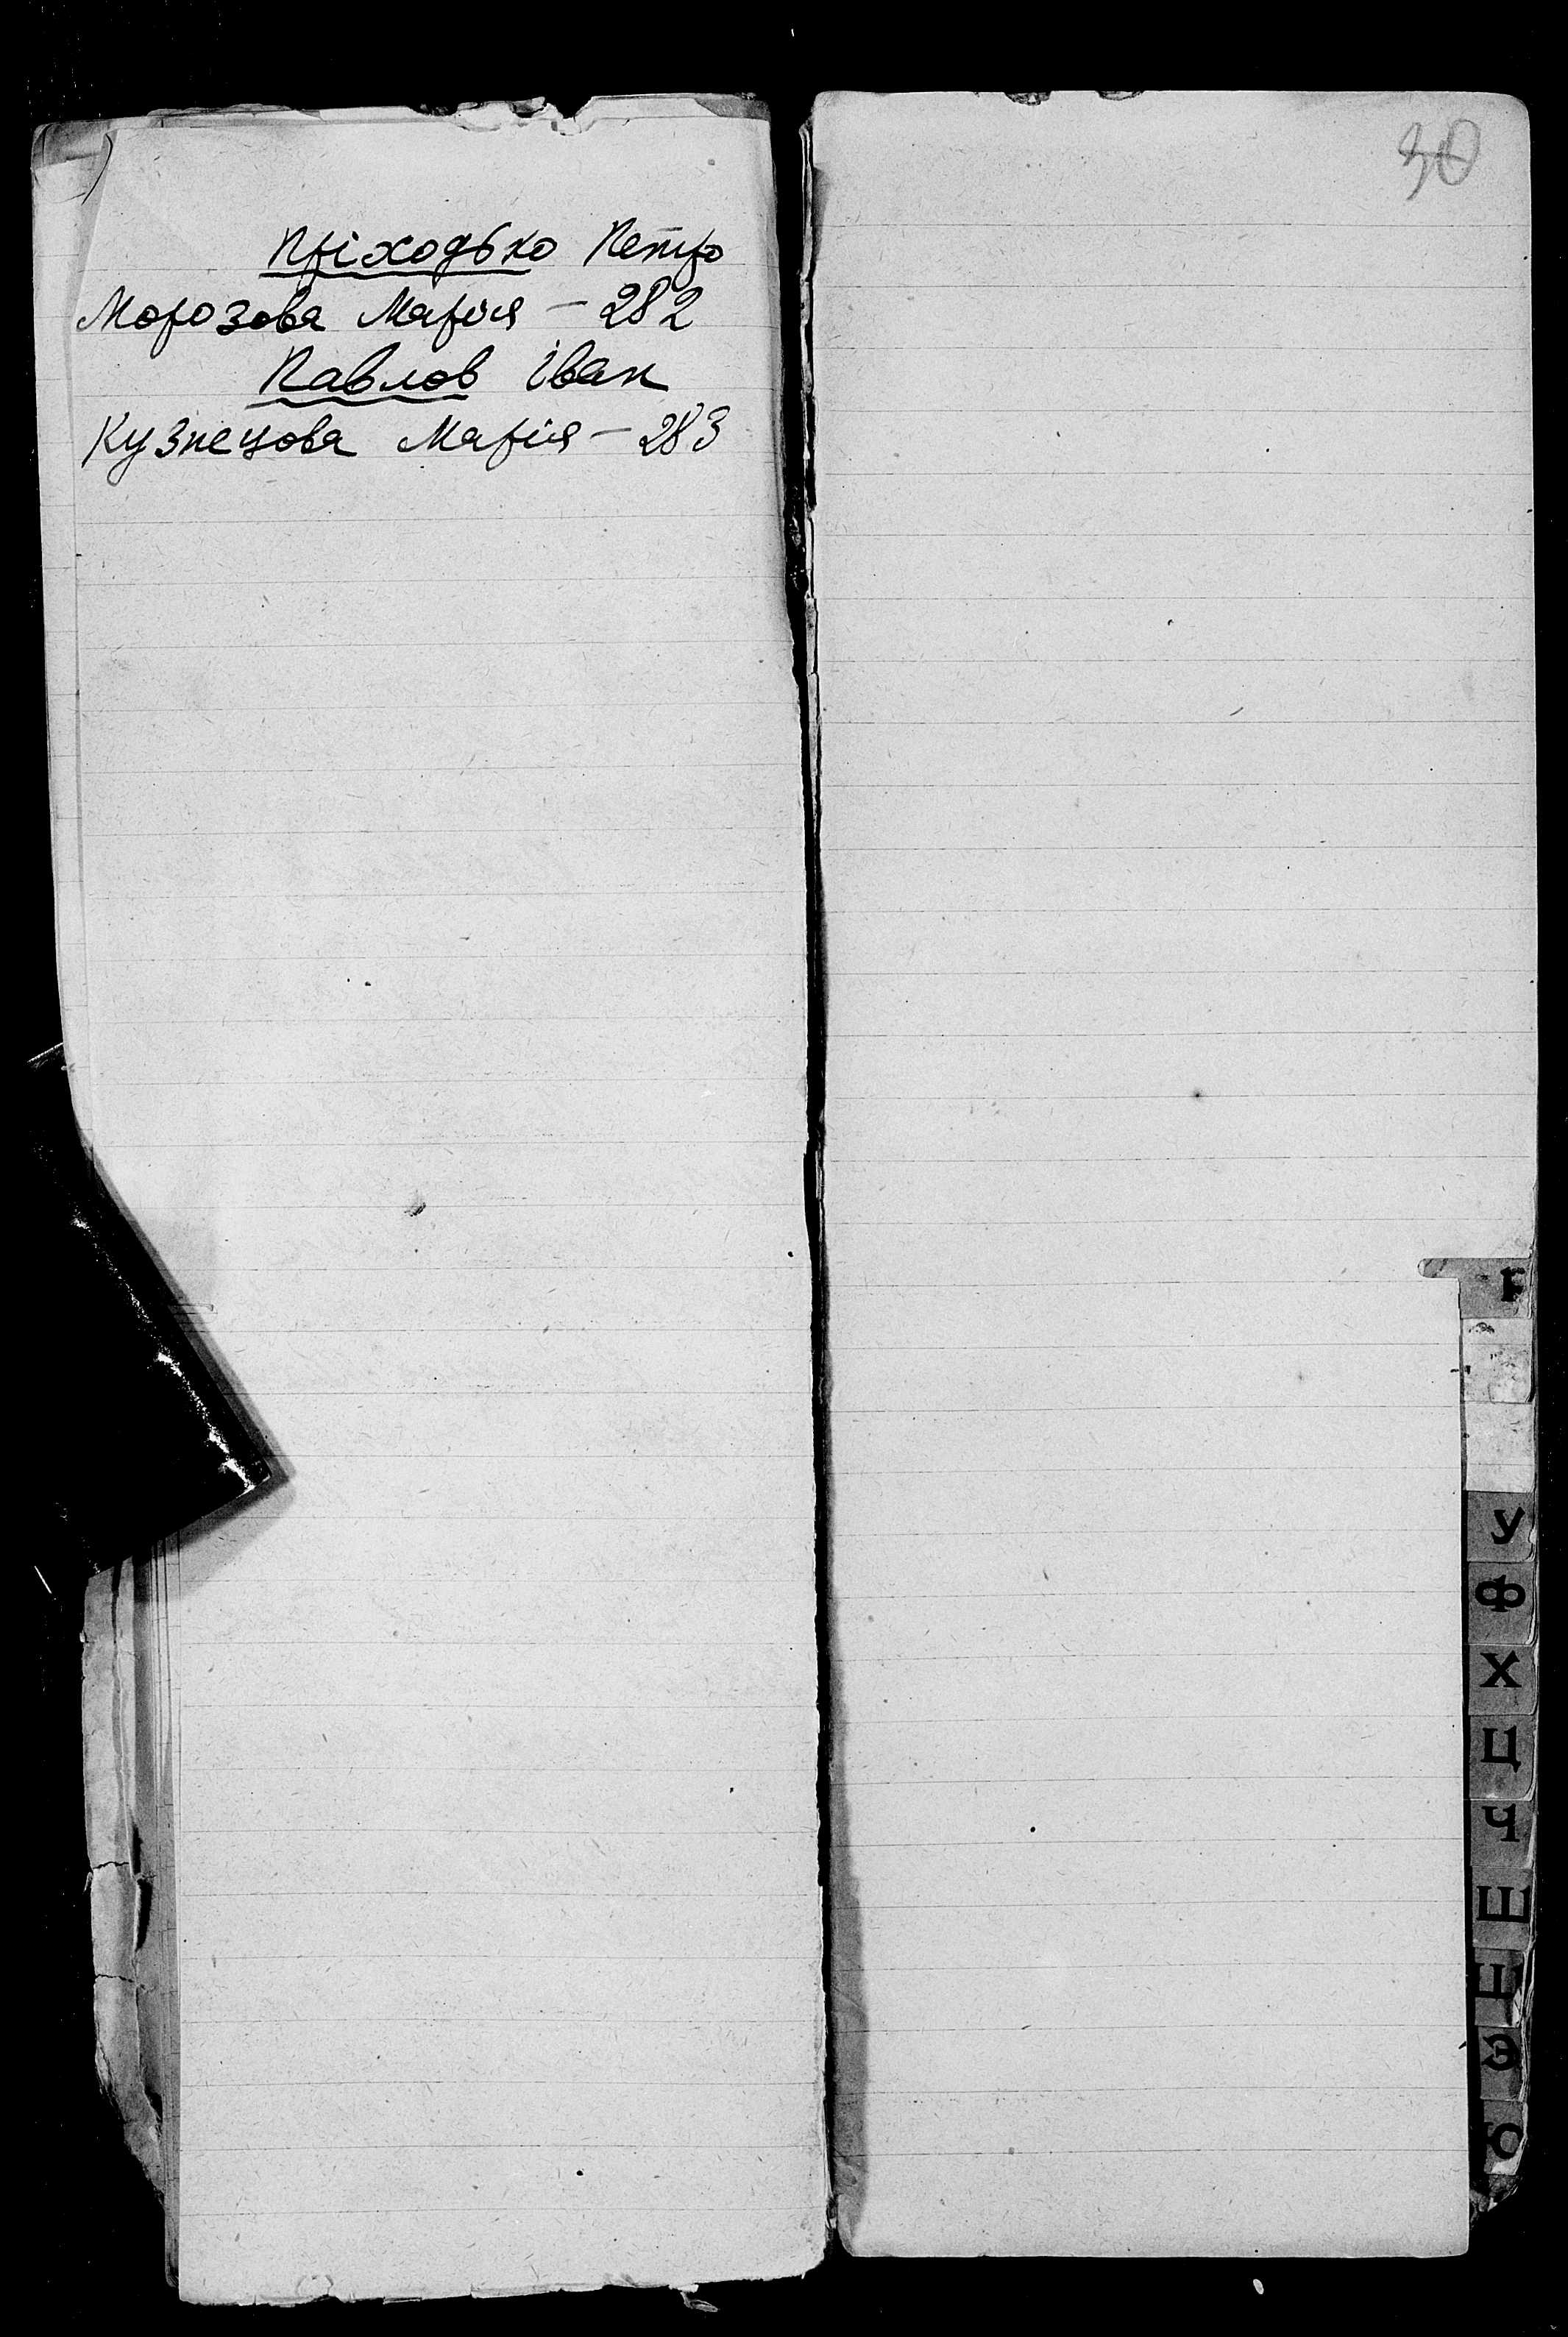 Пріходько Петро
Морозова Марія – 282
Павлов Іван
Кузнецова Марія – 283
30
Т
У
Ф
Х
Ц
Ч
Ш
Щ
Э
Ю